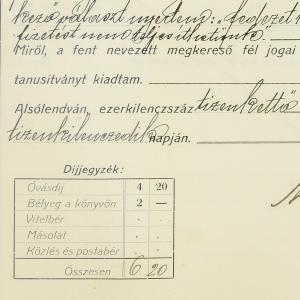 kező választ nyertem: „fedezet
fizetést nem teljesíthetünk.
Miről, a fent nevezett megkereső fél jogai
tanusítványt kiadtam.
Alsólendván, ezerkilenczszáz tizenkettő
tizenkilenczedik napján.
Díjjegyzék:
Óvásdíj 4 20
Bélyeg a könyvön 2 —
Vitelbér . .
Másolat . .
Közlés és postabér . .
Összesen 6 20